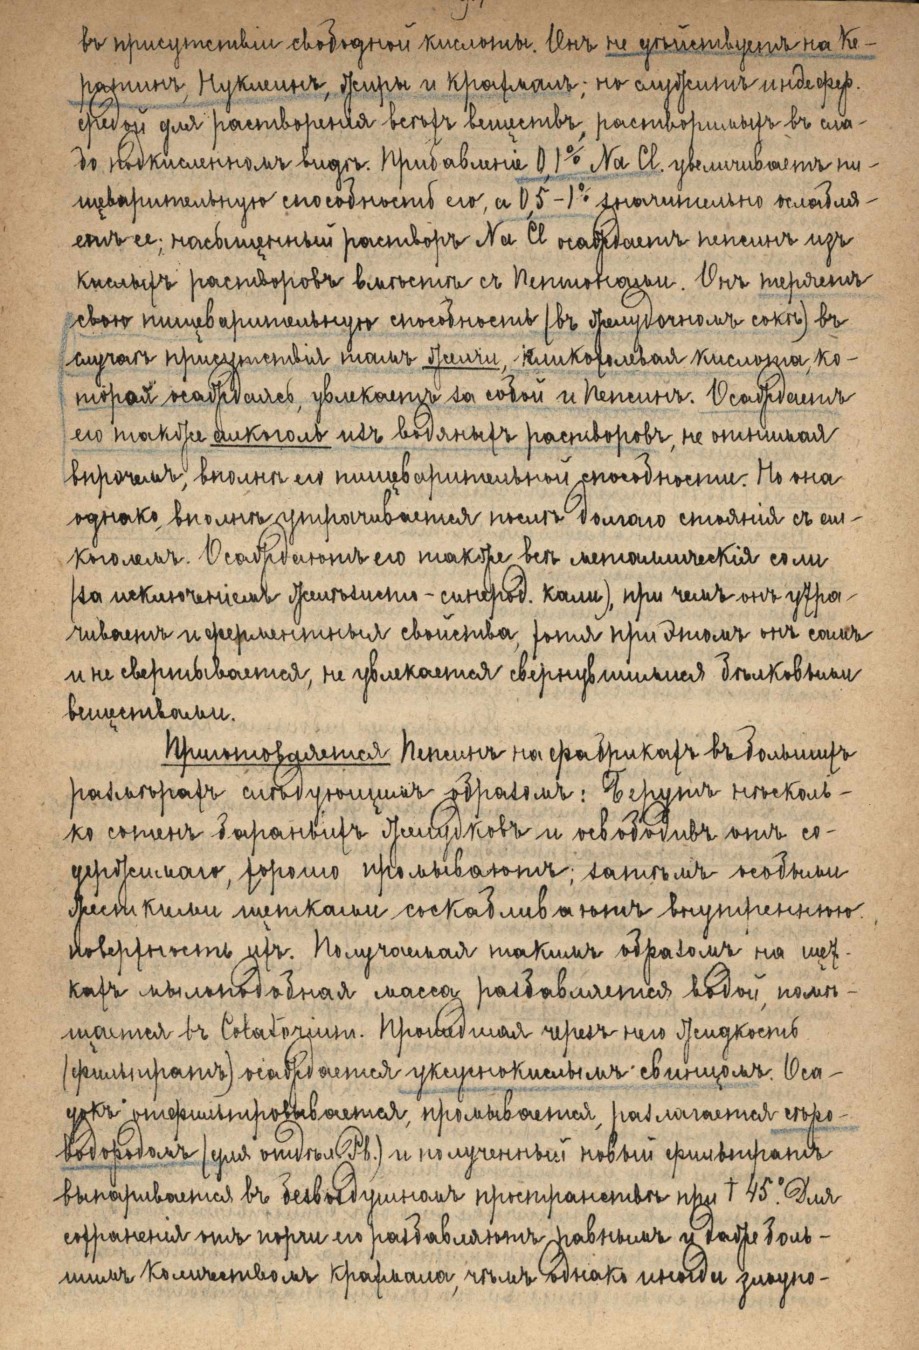 въ присутствіи свободной кислоты. Онъ не дѣйствуетъ на Ке-
ратинъ, Нуклеинъ, жиры и крахмалъ; но служитъ индефер.
средой для растворенія всѣхъ веществъ, растворимыхъ въ сла-
бо подкисленномъ видѣ. Прибавленіе 0,1% Na Cl. увеличиваетъ пи-
щеварительную способность его, а 0,5-1% значительно ослабля-
етъ ее; насыщенный растворъ Na Cl осаждаетъ пепсинъ изъ
кислыхъ растворовъ вмѣстѣ съ Пептонами. Онъ теряетъ
свою пищеварительную способность (въ желудочномъ сокѣ) въ
случаѣ присутствія тамъ желчи, гликохолевая кислота, ко-
торая осаждаясь, увлекаетъ за собой и Пепсинъ. Осаждаетъ
его также алкоголь изъ водяныхъ растворовъ, не отнимая
впрочемъ, вполнѣ его пищеварительной способности. Но она
однако, вполнѣ утрачивается послѣ долгаго стоянія съ ал-
коголемъ. Осаждаютъ его также всѣ металлическія соли
(за исключеніемъ желѣзисто-синерод. кали), при чемъ онъ утра-
чиваетъ и ферментныя свойства, хотя при этомъ онъ самъ
и не свертывается, не увлекается свернувшимися бѣлковыми
веществами.
Приготовляется Пепсинъ на фабрикахъ въ большихъ
размѣрахъ слѣдующимъ образомъ: Берутъ нѣсколь-
ко сотенъ бараньихъ желудковъ и освободивъ отъ со-
держимаго, хорошо промываютъ; затѣмъ особыми
жесткими щетками соскабливаютъ внутреннюю
поверхность ихъ. Получаемая такимъ образомъ на щет-
кахъ мылоподобная масса разбавляется водой, помѣ-
щается въ Colatorium. Прошедшая черезъ него жидкость
(фильтратъ) осаждается уксуснокислымъ свинцомъ. Оса-
докъ отфильтровывается, промывается, разлагается сѣро-
водородомъ (для отдѣл. Pb.) и полученный новый фильтратъ
выпаривается въ безвоздушномъ пространствѣ при † 45°. Для
сохраненія отъ порчи его разбавляютъ равнымъ и даже боль-
шимъ количествомъ крахмала, чѣмъ однако иногда злоупо-